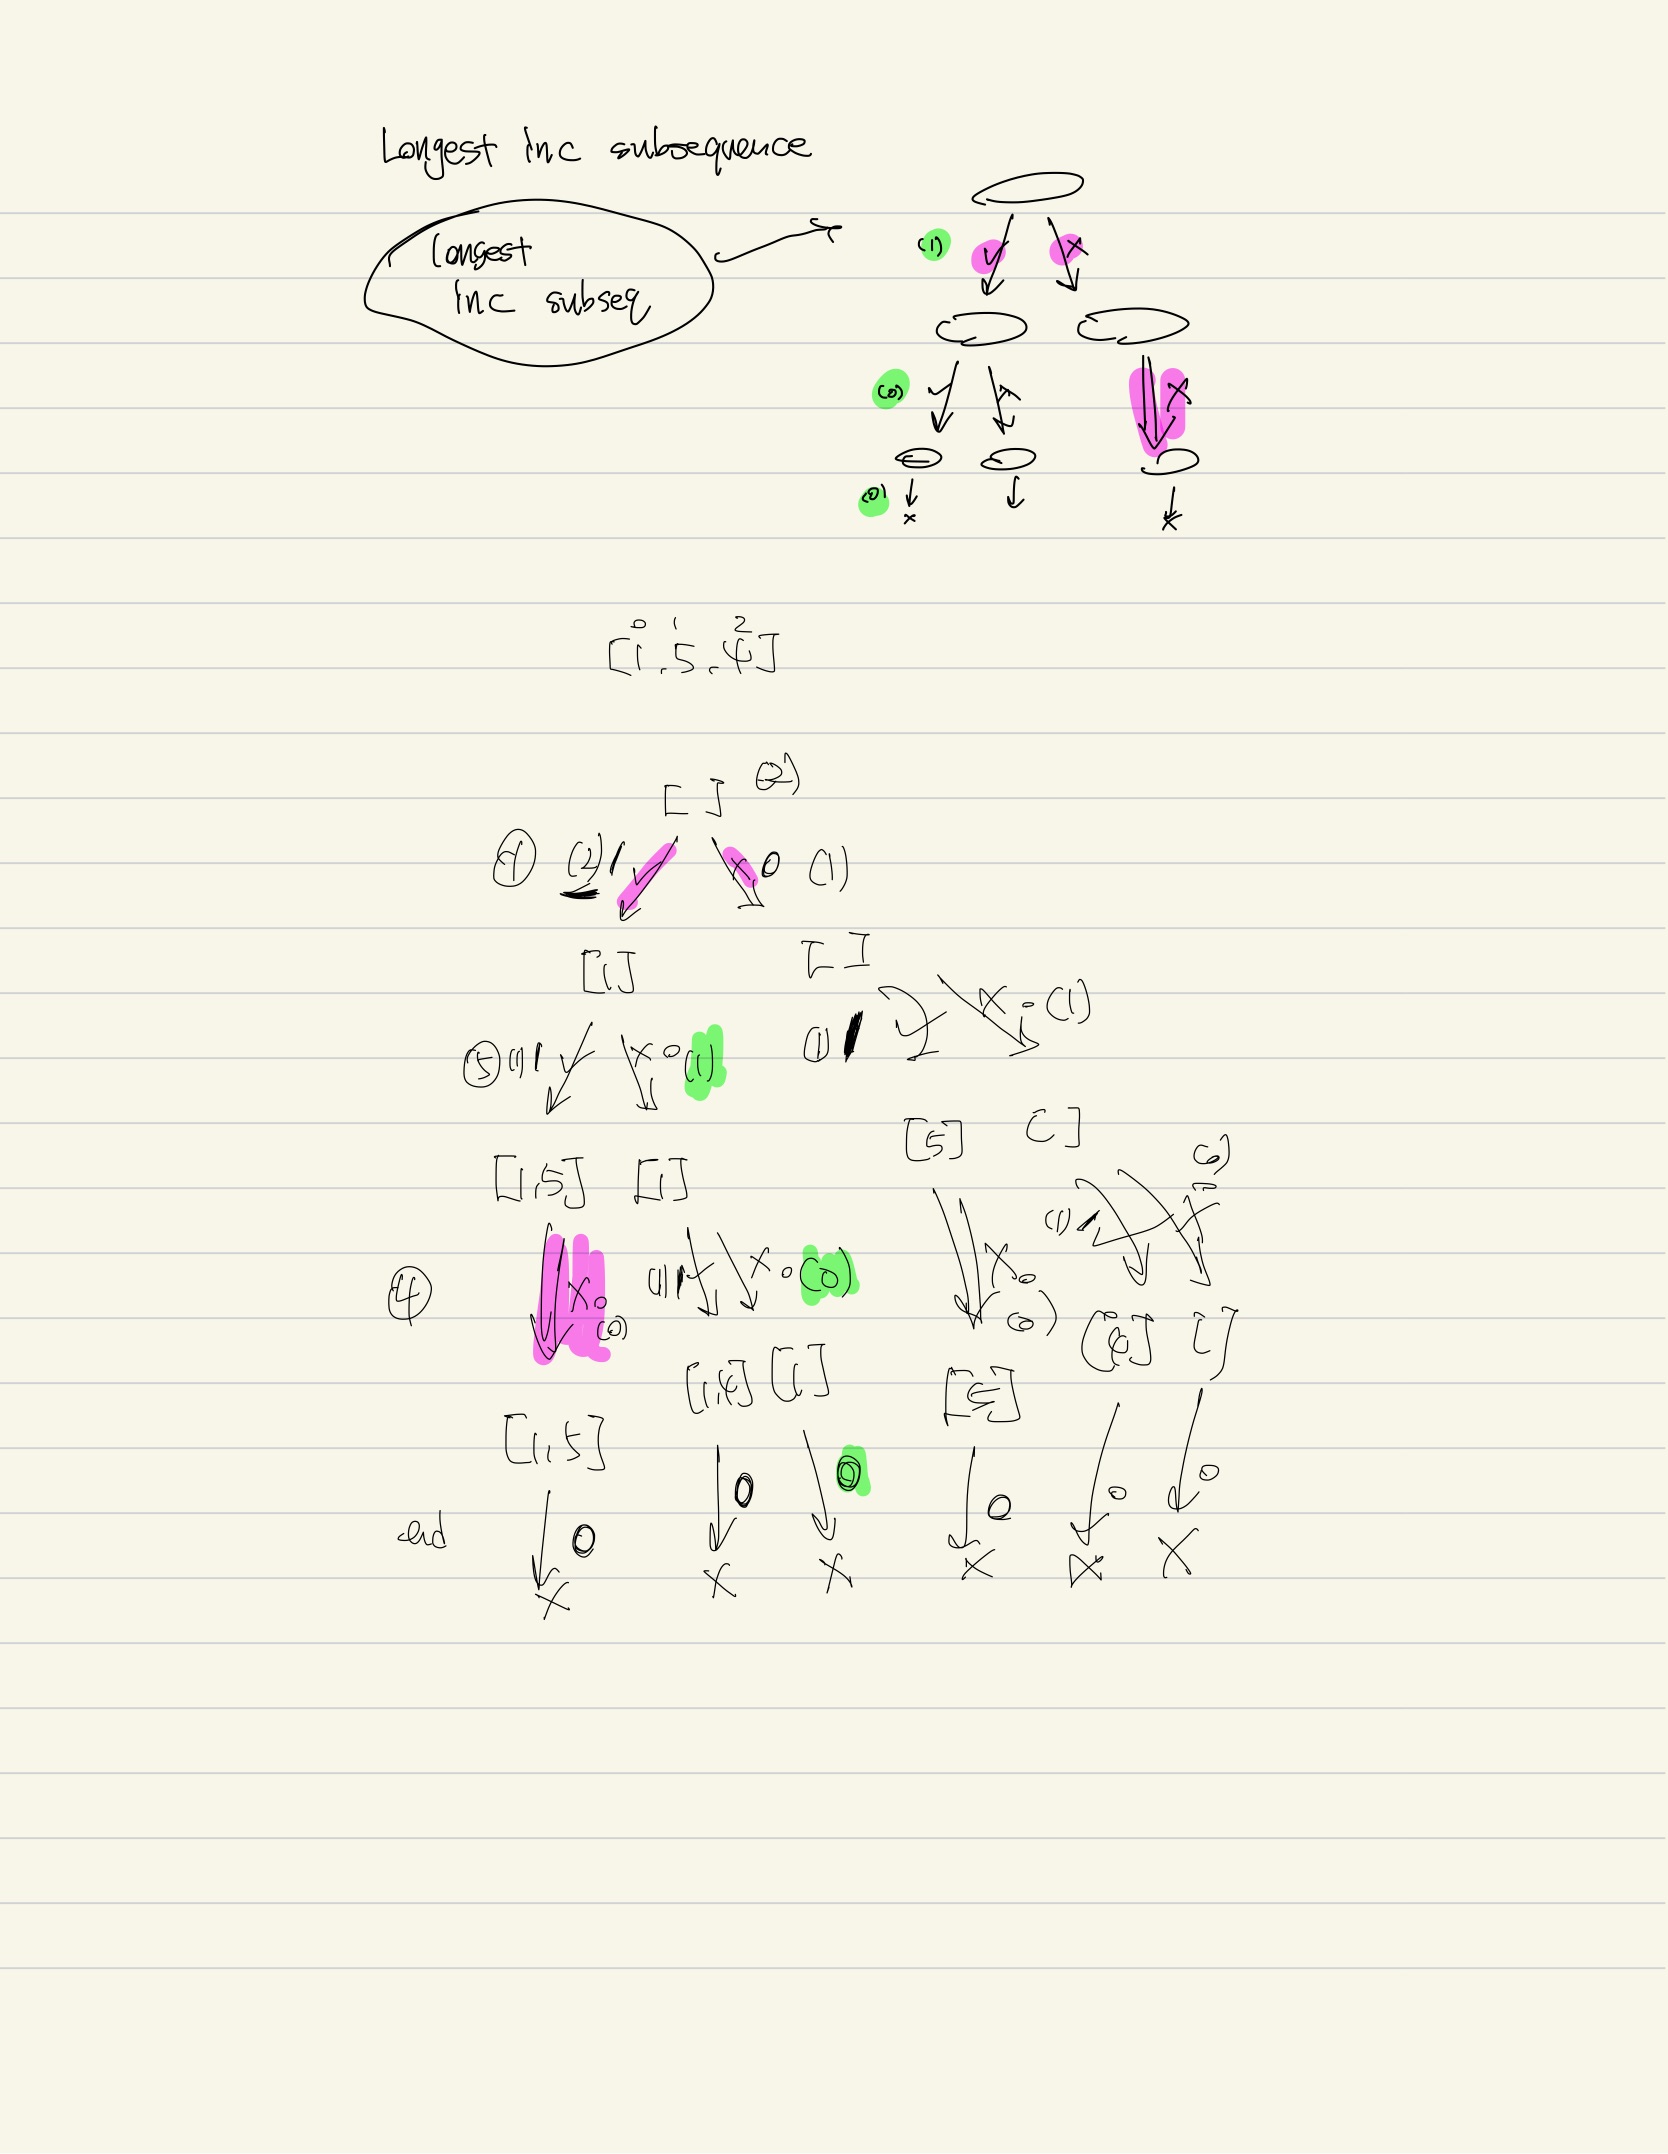 Longest inc subsequence
longest
inc subseq
(1) ✓ x
(0) ✓ x x
(0) x x
0 1 2
[1, 5, 4]
[ ] (2)
① (2) 1 ✓ x 0 (1)
[1] [ ]
⑤ (1) 1 ✓ x 0 (1) (1) ✓ x 0 (1)
[1,5] [1] [5] [ ]
④ x 0 (0) (1) 1 ✓ x 0 (0) x 0 (0) (1) ✓ x (0)
[1,5] [1,4] [1] [5] [4] [ ]
end 0 0 0 0 0 0
x x x x x x